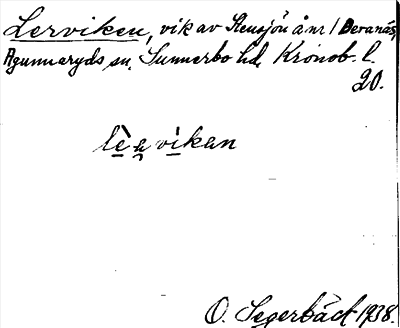 Lerviken, vik av Stensjön å nr 1 Beranäs,
Agunnaryds sn, Sunnerbo hd, Kronob. l.
20.
lèa̯vikan
O. Segerbäck 1938.